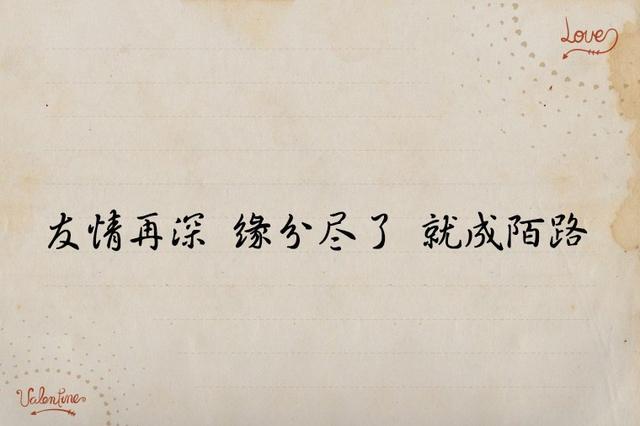 Love
友情再深 缘分尽了 就成陌路
Valentine